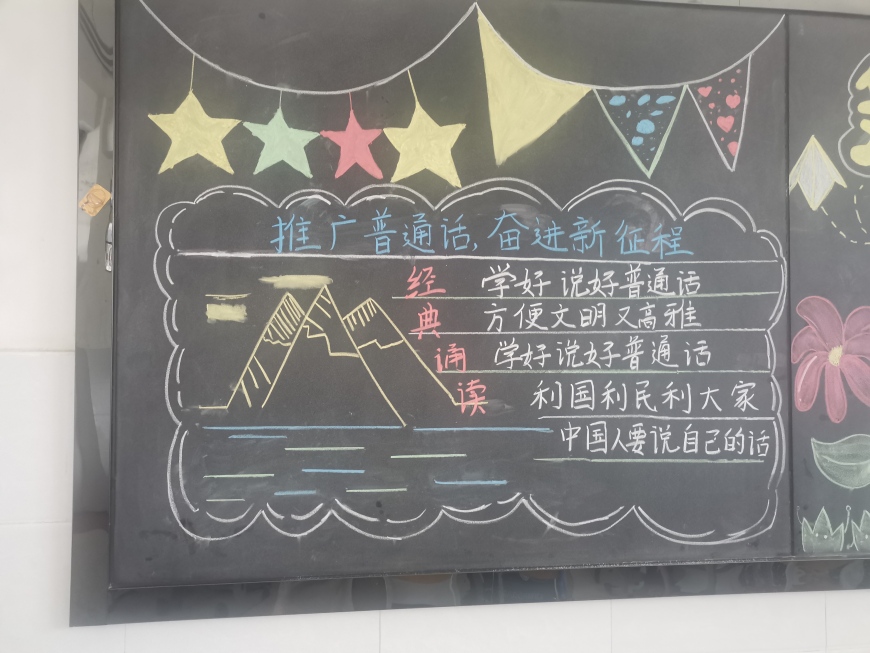 推广普通话,奋进新征程
经典诵读
学好说好普通话
方便文明又高雅
学好说好普通话
利国利民利大家
中国人要说自己的话